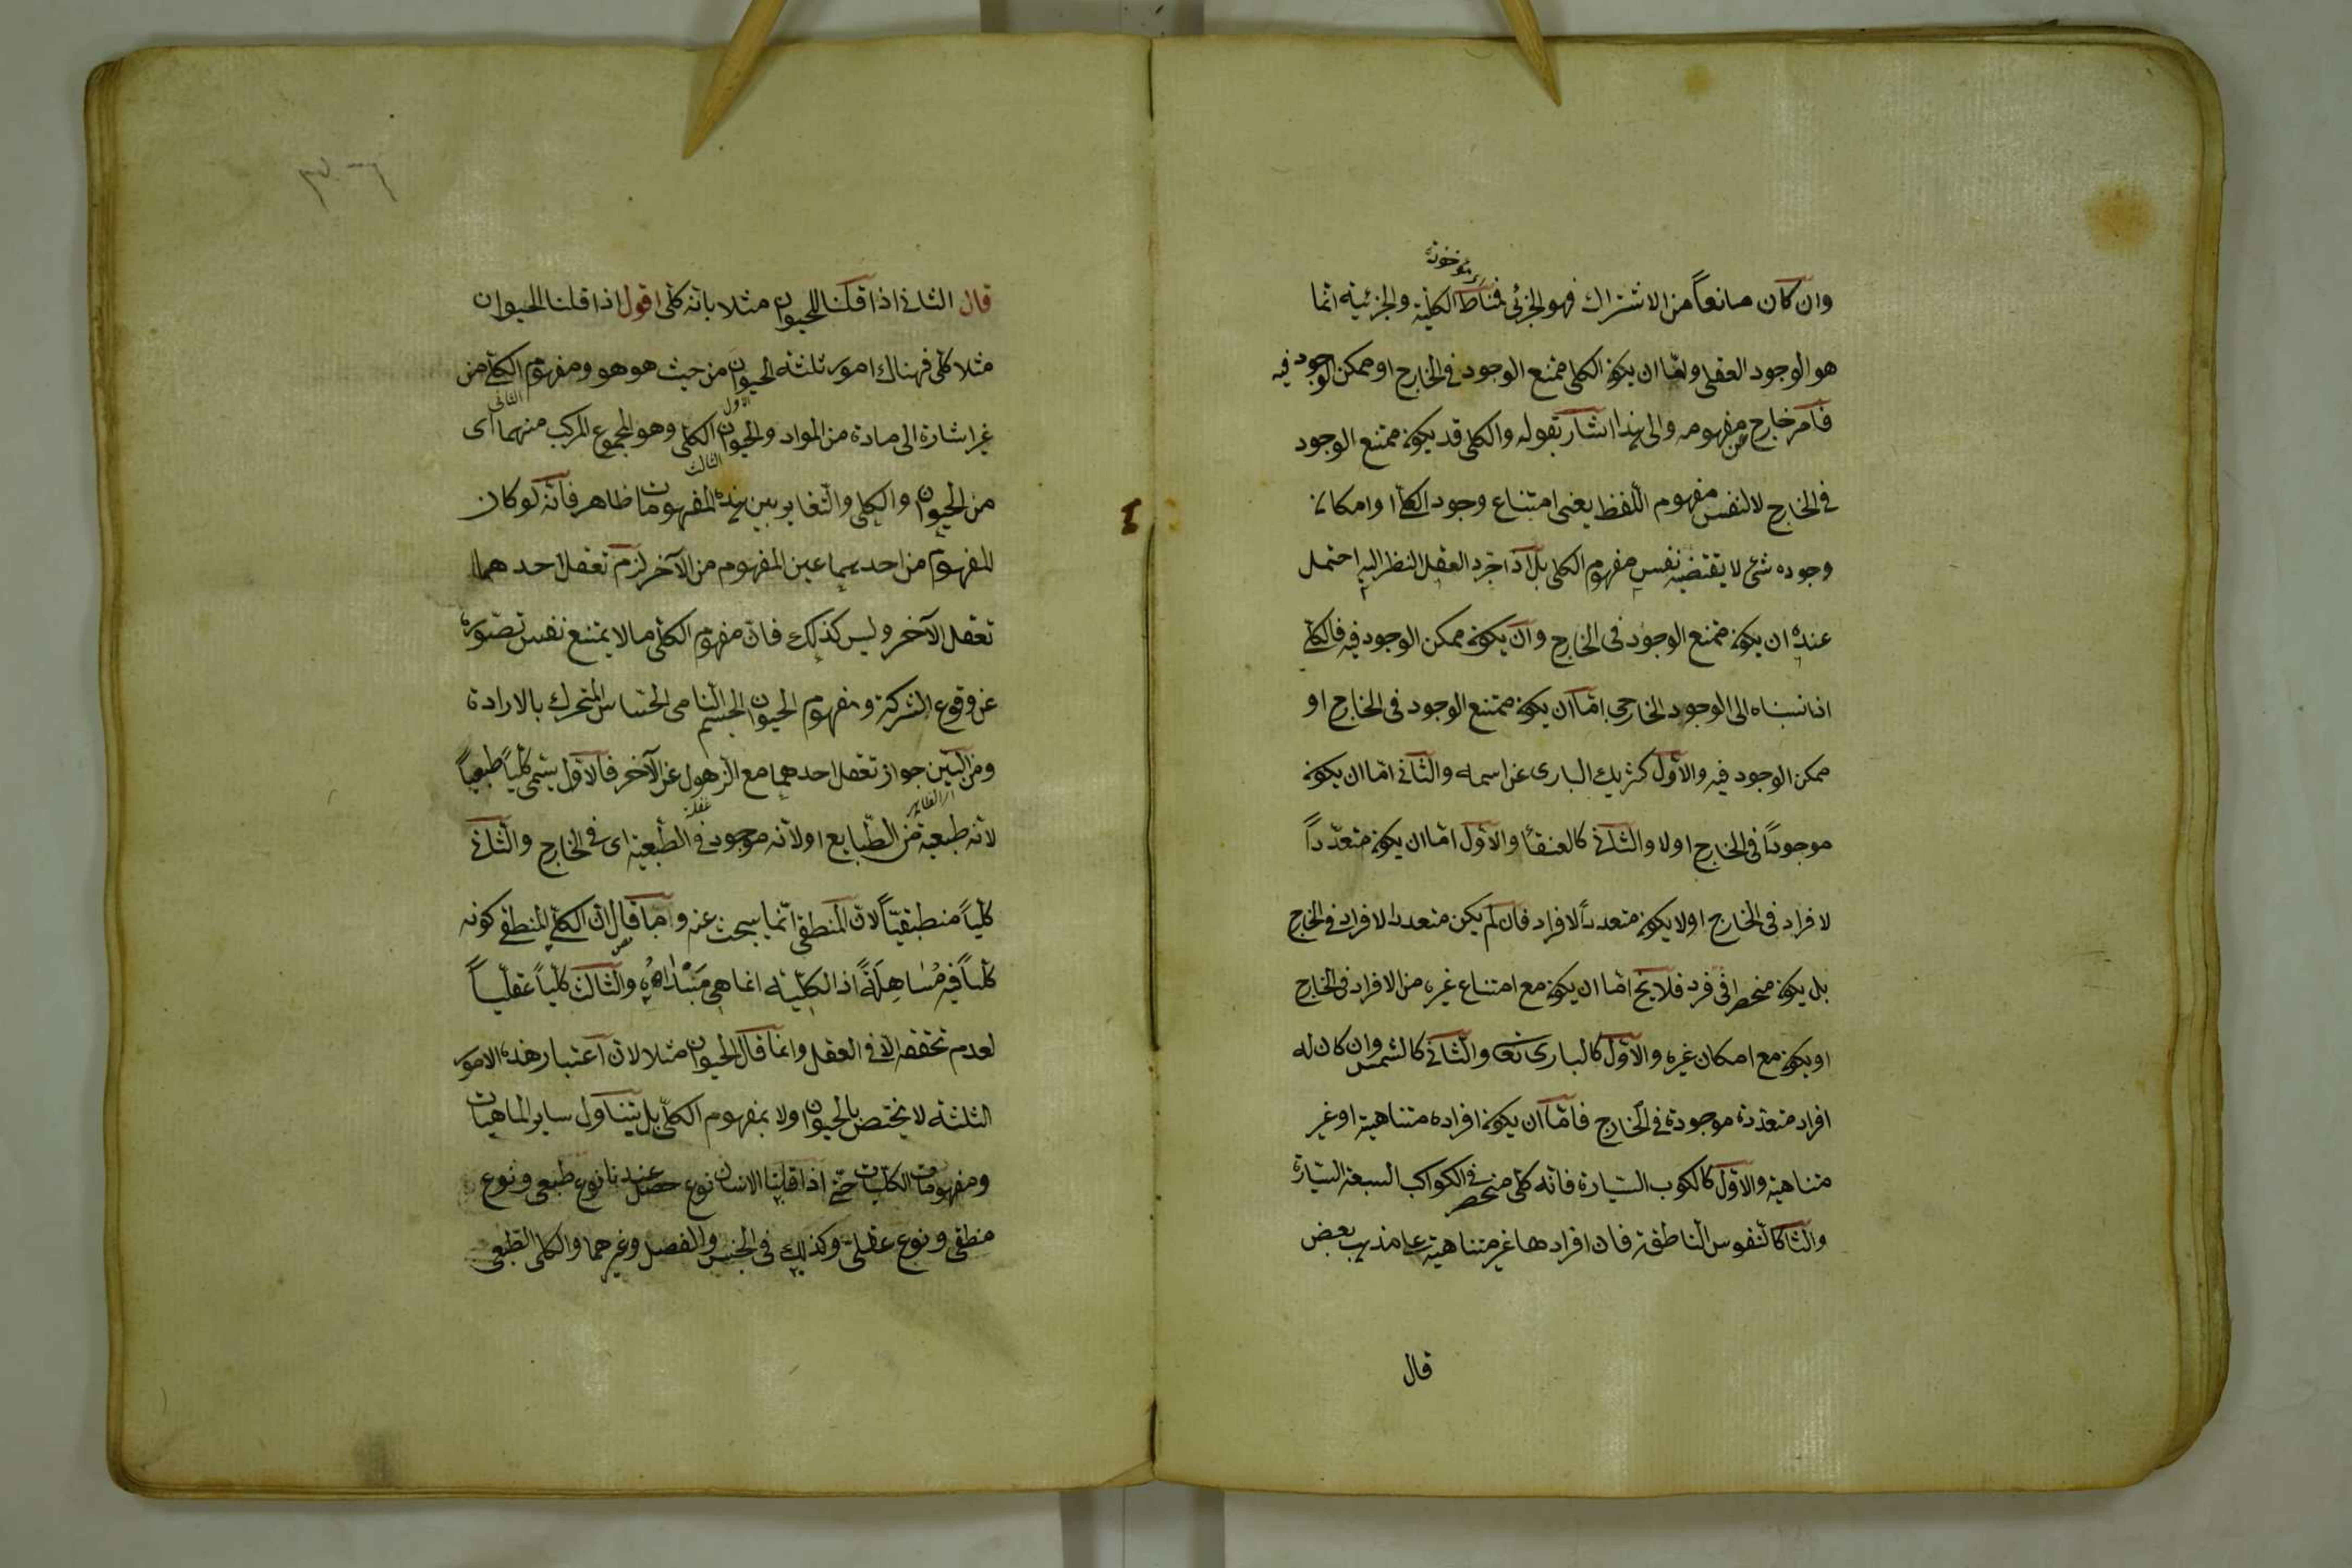 وان كان مانعاً من الاشتراك فهو الجزئى فمناط الكلية والجزئية انما
هو الوجود العقلى واما ان يكون الكلى ممتنع الوجود فى الخارج او ممكن الوجود فيه
فامر خارج عن مفهومه والى هذا اشار بقوله والكلى قد يكون ممتنع الوجود
فى الخارج لا لنفس مفهوم اللّفظ يعنى امتناع وجود الكلى او امكان
وجوده شئ لا يقتضيه نفس مفهوم الكلى بل اذا جرد العقل النظر اليه احتمل
عنده ان يكون ممتنع الوجود فى الخارج وان يكون ممكن الوجود فيه فالكلى
اذا نسبناه الى الوجود الخارجى امّا ان يكون ممتنع الوجود فى الخارج او
ممكن الوجود فيه والاول كشريك البارى عز اسمه والثانى امّا ان يكون
موجوداً فى الخارج اولا والثانى كالعنقاء والاول امّا ان يكون متعدّداً
لافراد فى الخارج او لا يكون متعدد الافراد فان لم يكن متعدد الافراد فى الخارج
بل يكون منحصرا فى فرد فلا يخ امّا ان يكون مع امتناع غيره من الافراد فى الخارج
او يكون مع امكان غيره والاول كالبارى تعا والثانى كالشمس وان كان له
افراد متعددة موجودة فى الخارج فامّا ان يكون افراده متناهية او غير
متناهية والاول كالكوكب السيارة فانه كلى منحصر فى الكواكب السبعة السيّارة
والثا كالنفوس الناطقة فان افرادها غير متناهية على مذهب بعض
قال
قال الثانى اذا قلنا للحيوان مثلا بانه كلى اقول اذا قلنا الحيوان
مثلا كلى فهناك امور ثلثة الحيوان من حيث هو هو ومفهوم الكلى من
غير اشارة الى مادة من المواد والحيوان الكلى وهو المجموع المركب منهما اى
الاول
الثانى
من الحيوان والكلى والتغاير بين هذه المفهومات ظاهر فانه لو كان
الثالث
المفهوم من احدهما عين المفهوم من الآخر لزم تعقل احدهما
تعقل الآخر وليس كذلك فان مفهوم الكلى ما لا يمتنع نفس تصوره
عن وقوع الشركة ومفهوم الحيوان الجسم النامى الحساس المتحرك بالارادة
ومن البيّن جواز تعقل احدهما مع الذهول عن الآخر فالاول يسمى كلياً طبعياً
غفلة
لانه طبعية من الطّبايع او لانه موجود فى الطّبعية اى فى الخارج والثانى
كلياً منطيقيّاً لان المنطقى انّما يبحث عنه وما قال ان الكلى المنطقى كونه
كلّياً فيه مُسَاهِلَةً اذ الكلية انما هى مبداه والثالث كليّاً عقليّاً
لعدم تحققه الا فى العقل وانما قال الحيوان مثلا لان اعتبار هذه الامور
الثلثة لا يختص بالحيوان ولا بمفهوم الكلى بل يتناول ساير الماهيات
ومفهومات الكليات حتى اذا قلنا الانسان نوع حصل عندنا نوع طبعى ونوع
منطقى ونوع عقلى وكذلك فى الجنس والفصل وغيرهما والكلى الطبعى